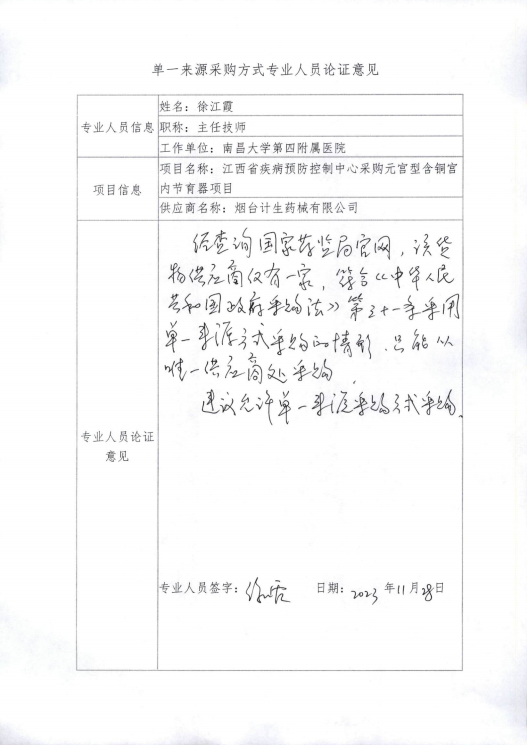 单一来源采购方式专业人员论证意见
专业人员信息
姓名：徐江霞
职称：主任技师
工作单位：南昌大学第四附属医院
项目信息
项目名称：江西省疾病预防控制中心采购元宫型含铜宫
内节育器项目
供应商名称：烟台计生药械有限公司
专业人员论证
意见
经查询国家药监局官网，该货
物供应商仅有一家，符合《中华人民
共和国政府采购法》第三十一条采用
单一来源方式采购的情形，只能从
唯一供应商处采购，
建议允许单一来源采购方式采购。
专业人员签字：徐江霞 日期：2023年11月28日